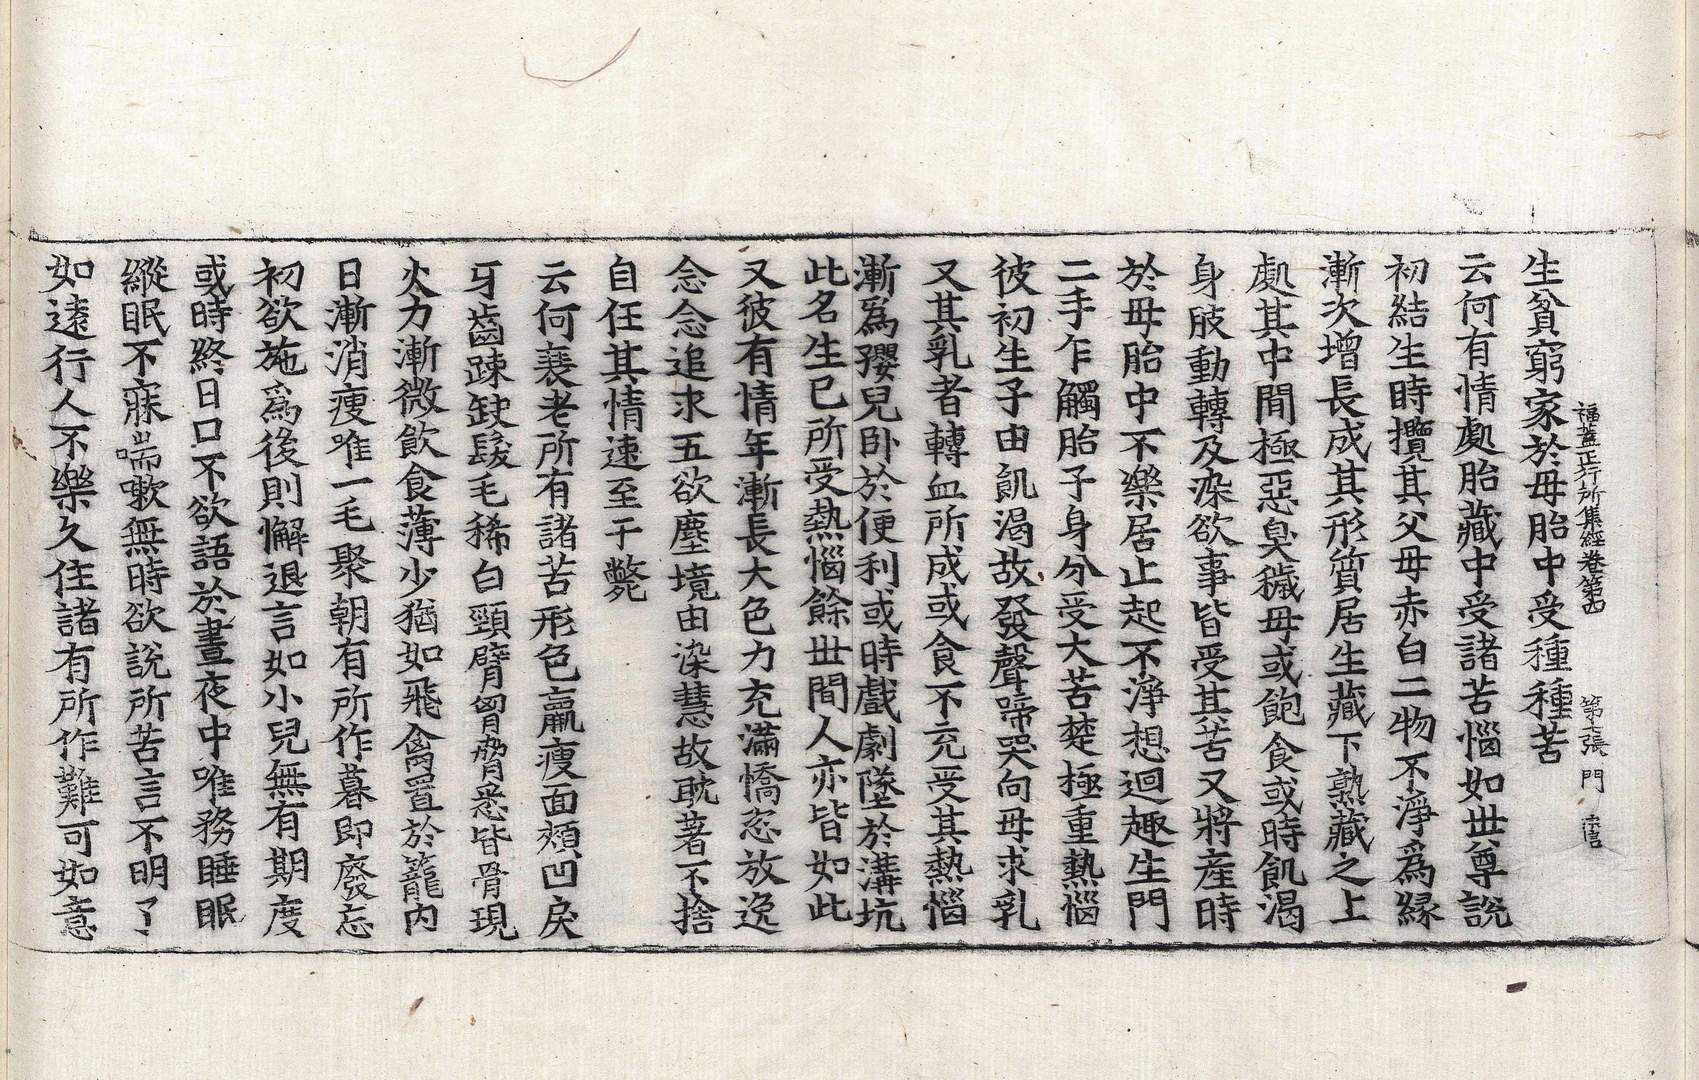 福蓋正行所集經卷第四 第七張 門 宗信
生貧窮家於母胎中受種種苦
云何有情處胎藏中受諸苦惱如世尊說
初結生時攬其父母赤白二物不淨爲緣
漸次增長成其形質居生藏下熟藏之上
處其中間極惡臭穢母或飽食或時飢渴
身肢動轉及染欲事皆受其苦又將産時
於母胎中不樂居止起不淨想迴趣生門
二手乍觸胎子身分受大苦楚極重熱惱
彼初生子由飢渴故發聲啼哭向母求乳
又其乳者轉血所成或食不充受其熱惱
漸爲孾兒卧於便利或時戲劇墜於溝坑
此名生已所受熱惱餘世間人亦皆如此
又彼有情年漸長大色力充滿憍恣放逸
念念追求五欲塵境由染慧故耽著不捨
自任其情速至于斃
云何衰老所有諸苦形色羸瘦面頰凹戾
牙齒踈缺髮毛稀白頸臂胷脅悉皆骨現
火力漸微飲食薄少猶如飛禽置於籠內
日漸消瘦唯一毛聚朝有所作暮即廢忘
初欲施爲後則懈退言如小兒無有期度
或時終日口不欲語於晝夜中唯務睡眠
縱眠不寐喘嗽無時欲說所苦言不明了
如遠行人不樂久住諸有所作難可如意